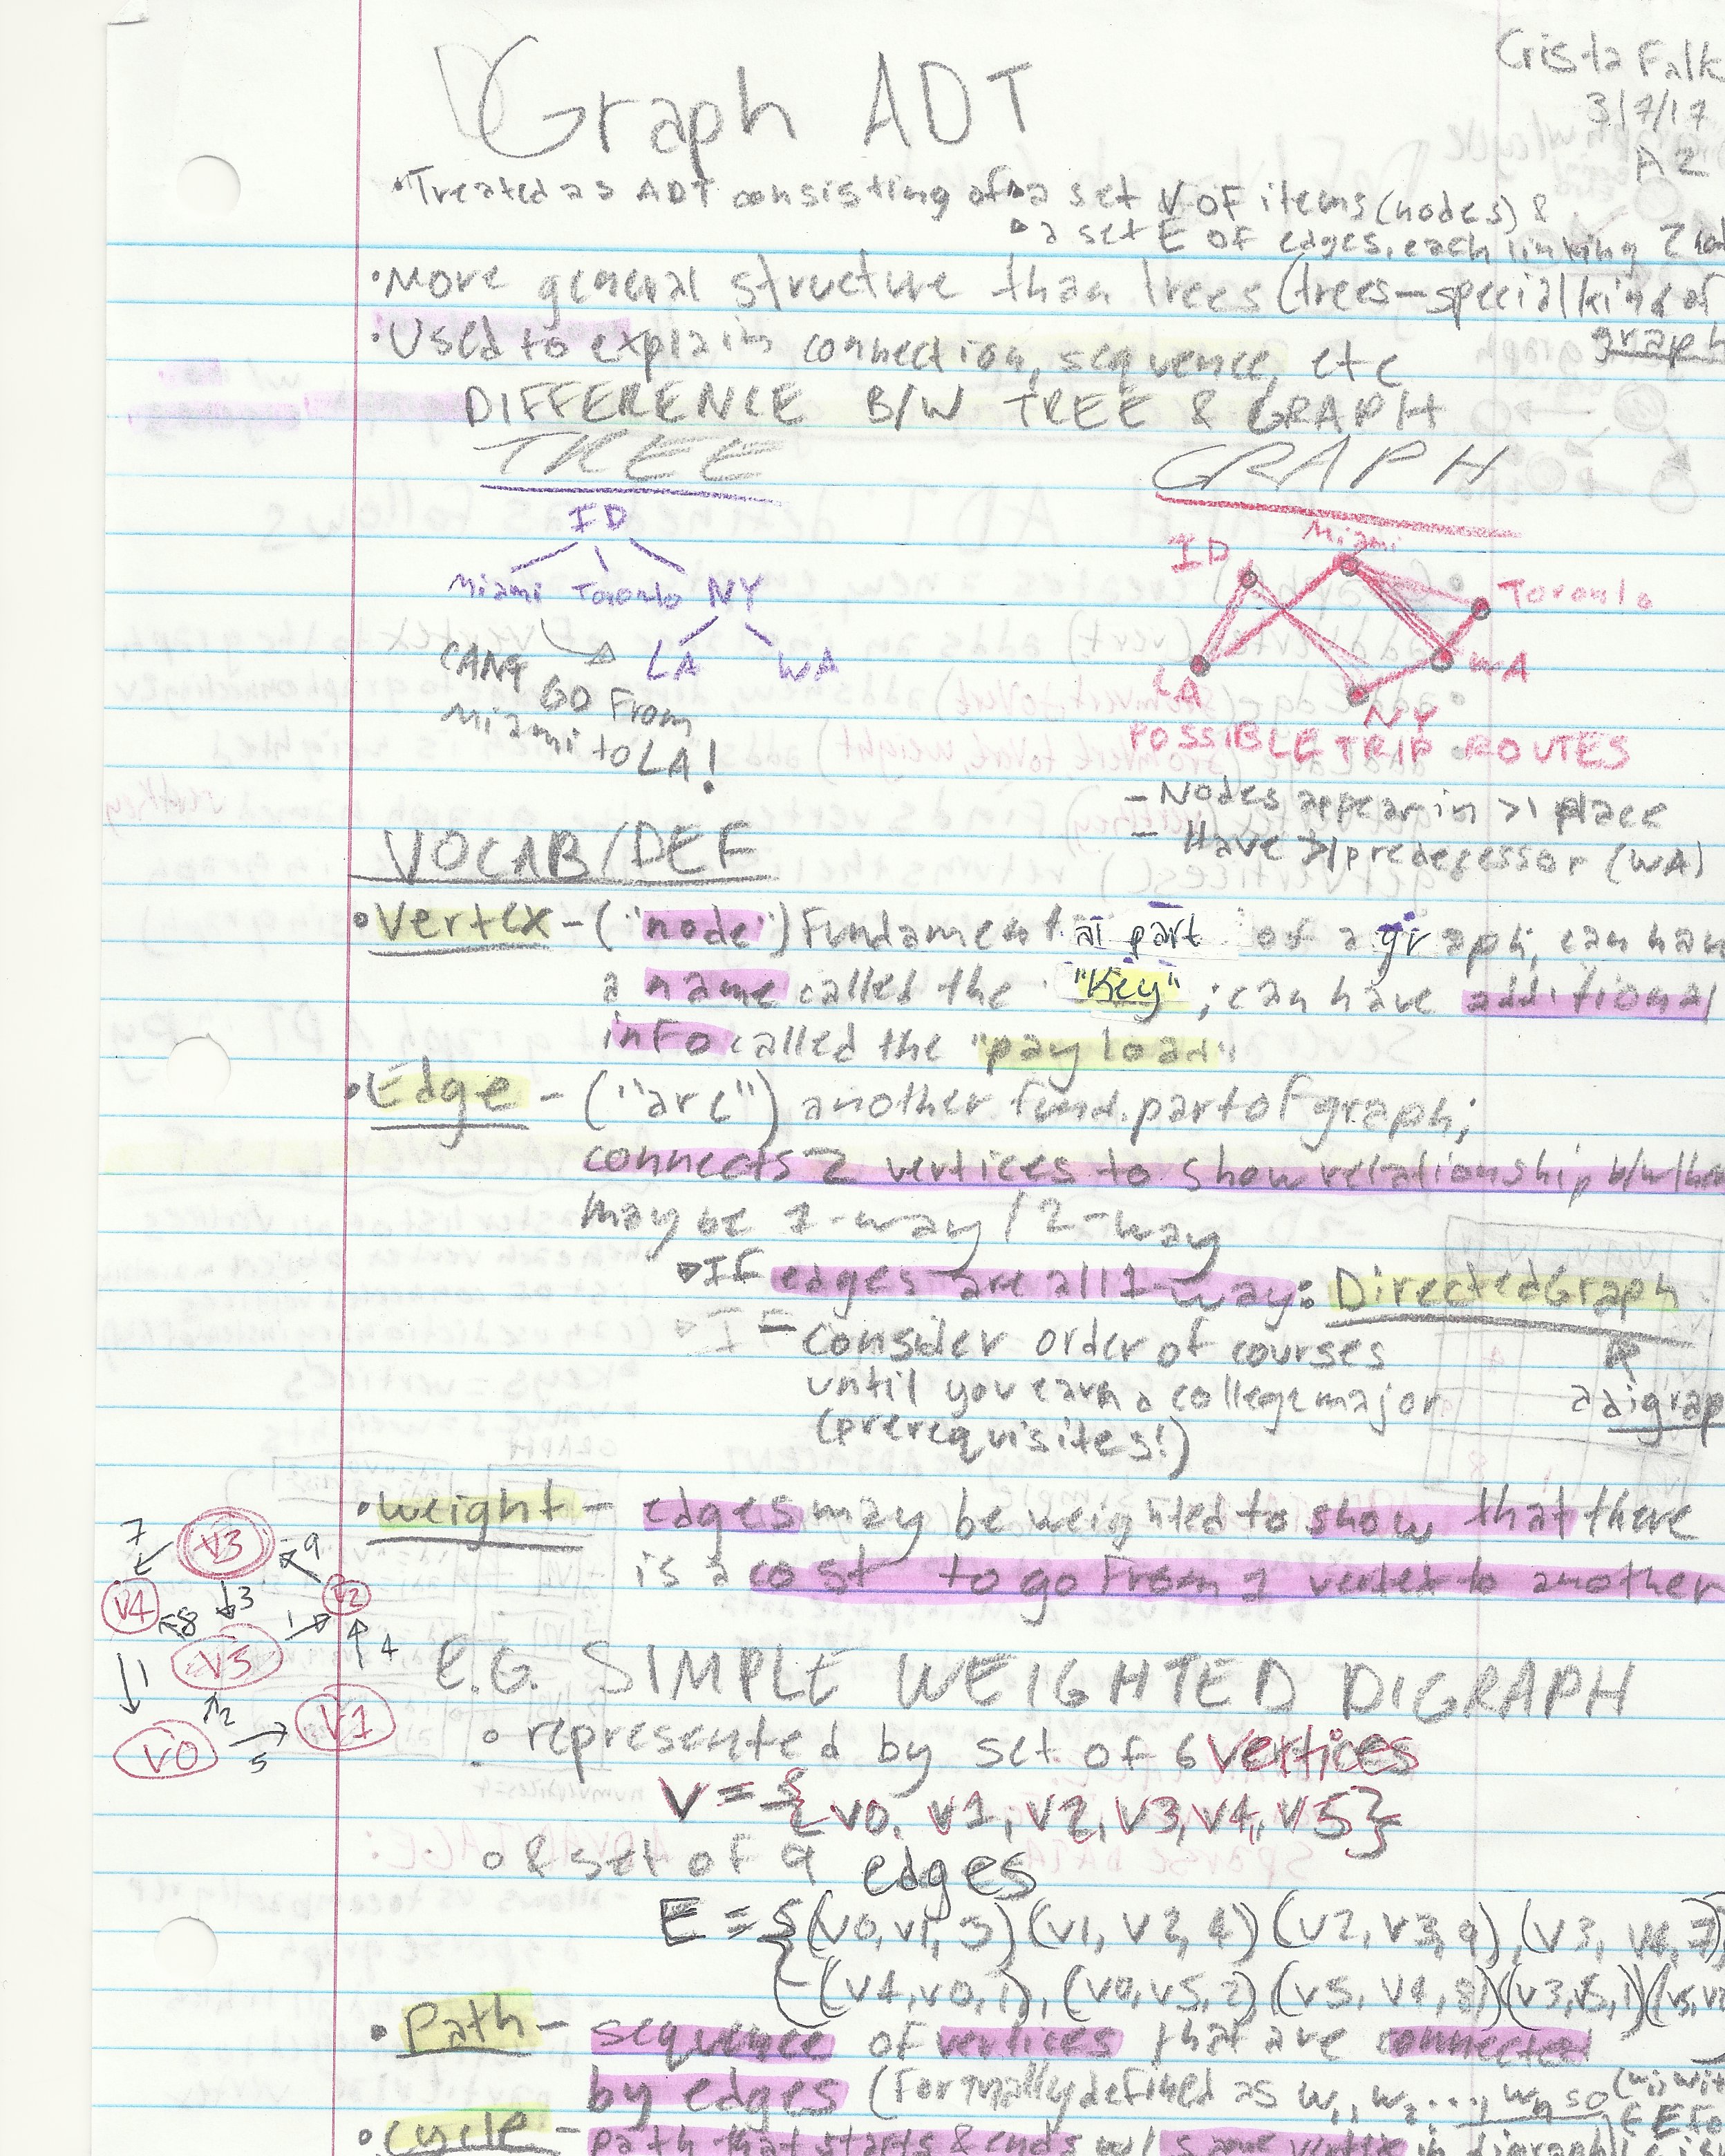 Graph ADT
Crista Falk
3/7/17
A2
• Treated as ADT consisting of ▹ a set V OF items (nodes) &
▹ a set E OF edges, each linking 2
• More general structure than trees (trees – special kind of
graph
• Used to explain connection, sequence, etc
DIFFERENCE B/W TREE & GRAPH
TREE
GRAPH
ID
Miami Toronto NY
LA WA
CAN'T GO From
Miami to LA!
ID Miami
Toronto
LA WA
NY
POSSIBLE TRIP ROUTES
– Nodes appear in >1 place
– Have >1 predecessor (WA)
VOCAB/DEF
• Vertex – ("node") Fundamental part of a graph; can hav
a name called the "Key"; can have additional
info called the "payload"
• Edge – ("arc") another fund. part of graph;
connects 2 vertices to show relationship b/w
may be 1-way / 2-way
▹ IF edges are all 1-way: Directed Graph
▹ IF
– consider order of courses
until you earn a college major
(prerequisites!)
a digrap
• weight – edges may be weighted to show that there
is a cost to go From 1 vertex to another
7 V3 9
V4 8 3 V2
1 V5 1 4
2 V1
V0 5
e.G. SIMPLE WEIGHTED DIGRAPH
◦ represented by set of 6 vertices
V = {v0, v1, v2, v3, v4, v5}
◦ & set of 9 edges
E = {(v0,v1,5) (v1, v2, 4) (v2, v3, 9), (v3, v4, 7)
(v4,v0,1), (v0,v5,2) (v5, v4, 8) (v3,v5,1)
• Path – sequence of vertices that are connected
by edges (Formally defined as w₁, w₂ ..., wn so
• cycle – path that starts & ends w/ same vertex in digraph